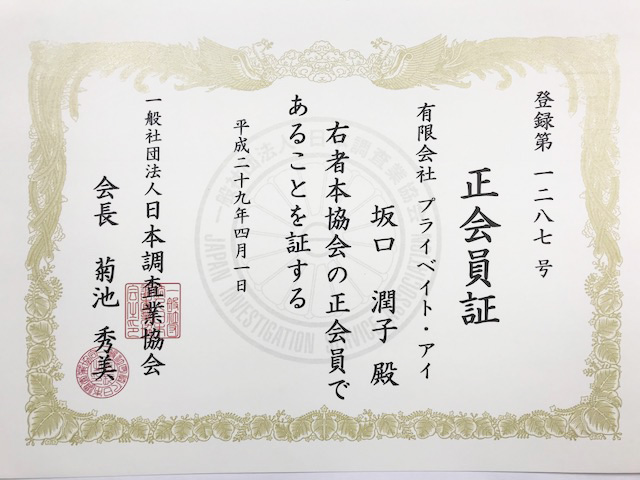 登録第 一二八七 号
正会員証
有限会社 プライベイト・アイ
坂口 潤子 殿
右者本協会の正会員で
あることを証する
平成二十九年四月一日
一般社団法人日本調査業協会
会長 菊池 秀美
JAPAN INVESTIGATION